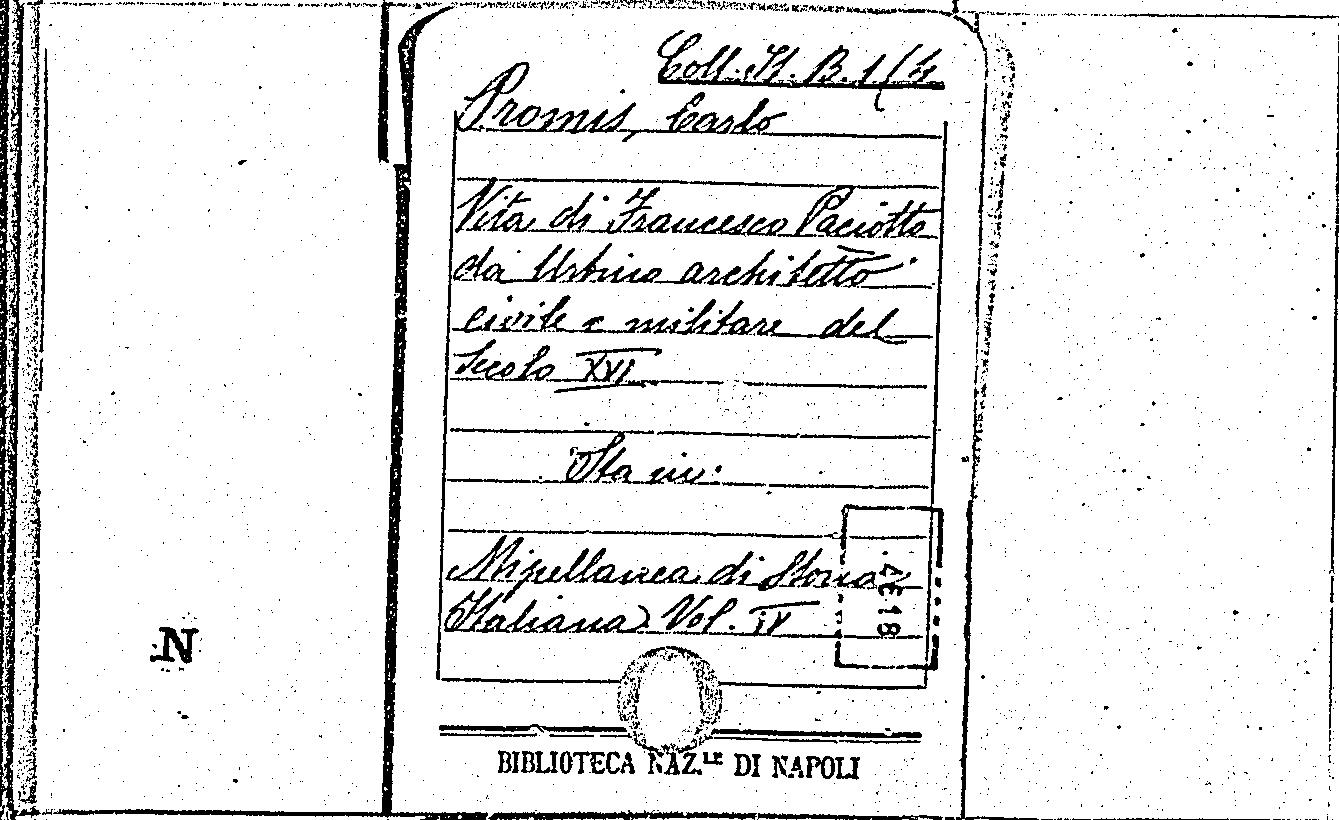 Coll. It. B. 1/4
Promis, Carlo
Vita di Francesco Paciotto
da Urbino architetto
civile e militare del
Secolo XVI
Sta in:
Miscellanea di Storia
Italiana) Vol. IV
N
BIBLIOTECA NAZ.LE DI NAPOLI